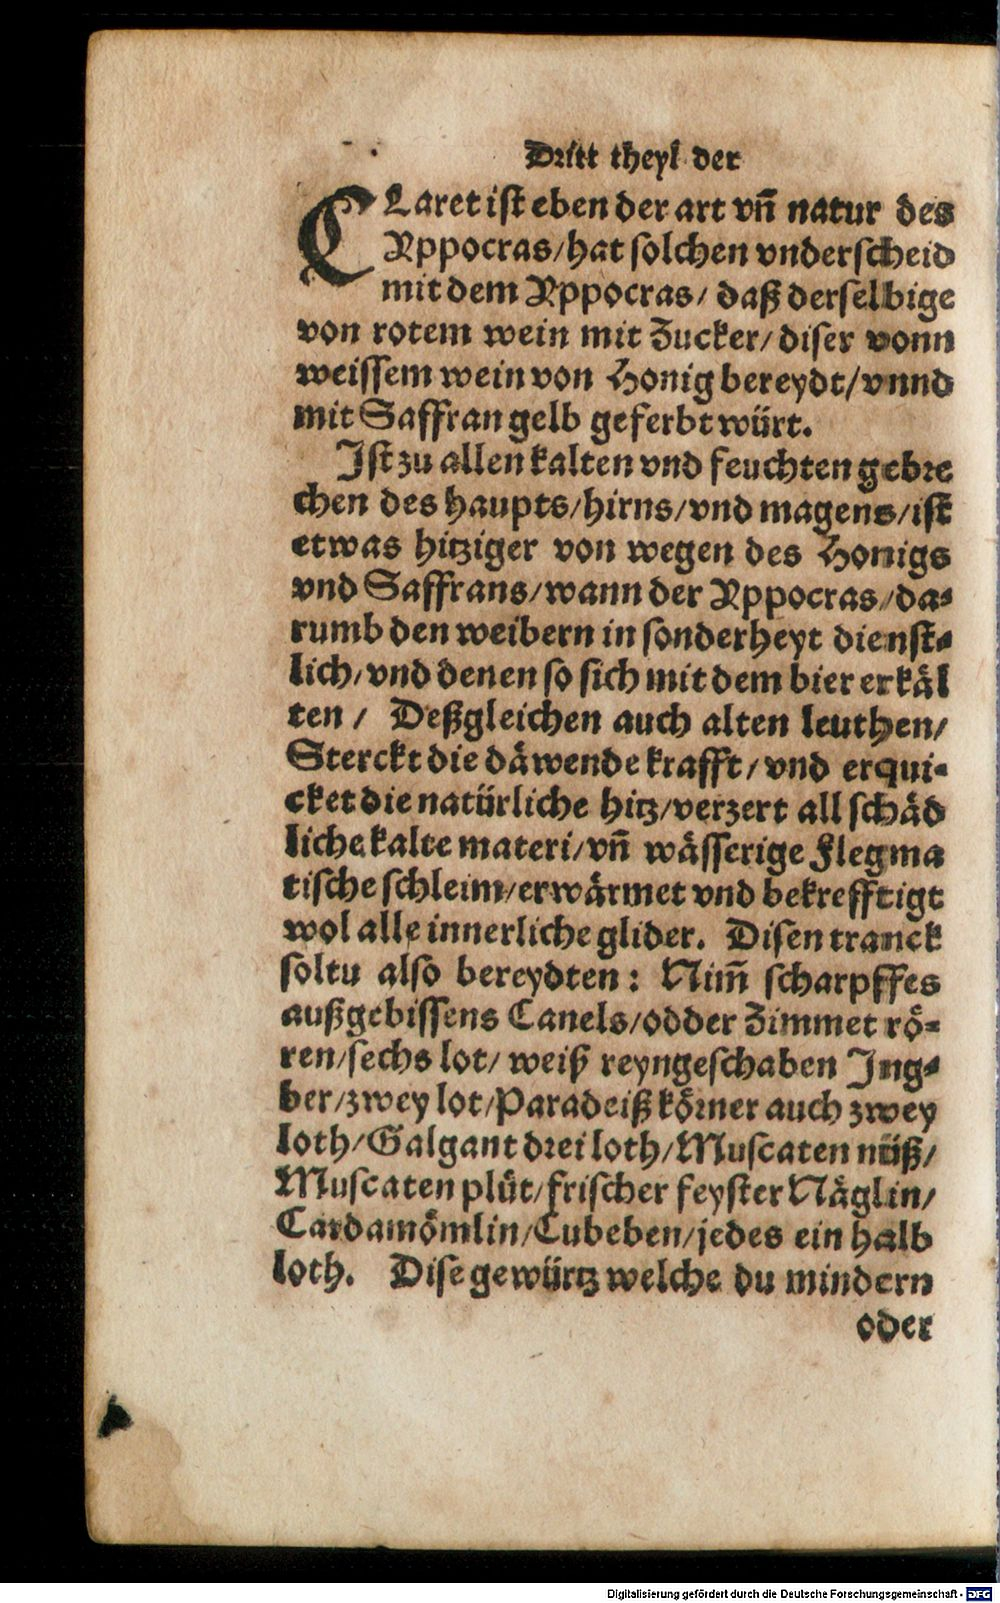 Dritt theyl der
CLaret ist eben der art vñ natur des
Yppocras/hat solchen vnderscheid
mit dem Yppocras/ daß derselbige
von rotem wein mit Zucker/diser vonn
weissem wein von Honig bereydt/vnnd
mit Saffran gelb geferbt würt.
Ist zu allen kalten vnd feuchten gebre
chen des haupts/hirns/vnd magens/ist
etwas hitziger von wegen des Honigs
vnd Saffrans/wann der Yppocras/da-
rumb den weibern in sonderheyt dienst-
lich/vnd denen so sich mit dem bier erkäl
ten / Deßgleichen auch alten leuthen/
Sterckt die däwende krafft/vnd erqui-
cket die natürliche hitz/verzert all schäd
liche kalte materi/vñ wässerige Flegma
tische schleim/erwärmet vnd bekrefftigt
wol alle innerliche glider. Disen tranck
soltu also bereydten: Nim̃ scharpffes
außgebissens Canels/odder Zimmet rö-
ren/sechs lot/ weiß reyngeschaben Ing-
ber/zwey lot/Paradeiß körner auch zwey
loth/Galgant drei loth/Muscaten nüß/
Muscaten plüt/frischer feyster Näglin/
Cardamömlin/Cubeben/jedes ein halb
loth. Dise gewürtz welche du mindern
oder
Digitalisierung gefördert durch die Deutsche Forschungsgemeinschaft - DFG